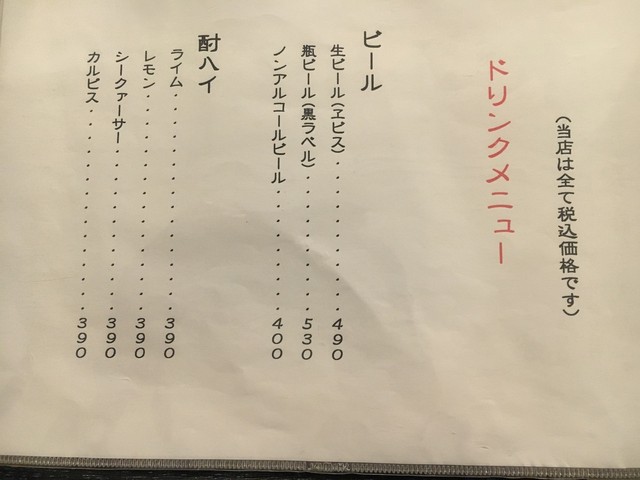 (当店は全て税込価格です)
ドリンクメニュー
ビール
生ビール(ヱビス)・・・・・・・・・・・490
瓶ビール(黒ラベル)・・・・・・・・・・530
ノンアルコールビール・・・・・・・・・400
酎ハイ
ライム・・・・・・・・・・・・・・・・390
レモン・・・・・・・・・・・・・・・・390
シークァーサー・・・・・・・・・・・・390
カルピス・・・・・・・・・・・・・・・390